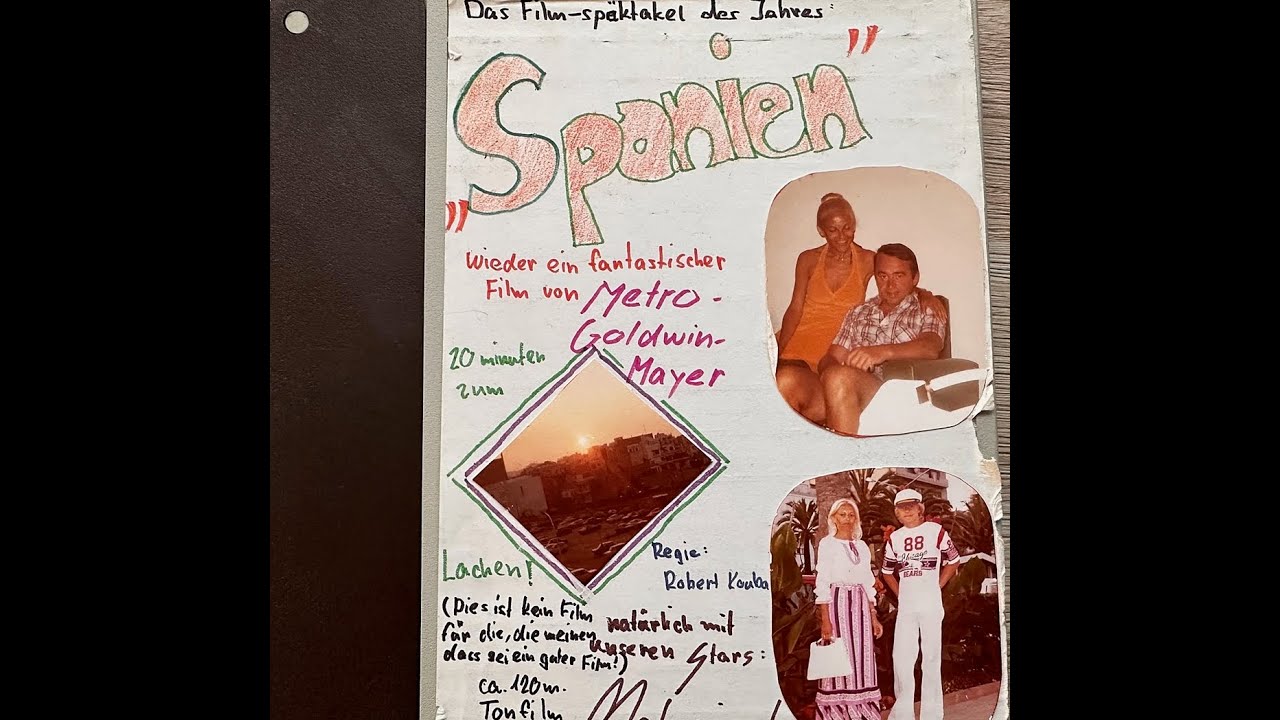 Das Film-späktakel des Jahres:
„Spanien”
Wieder ein fantastischer
Film von Metro-
Goldwin-
Mayer
20 minuten
zum
Lachen!
Regie:
Robert Kouba
(Dies ist kein Film
für die, die meinen
dass sei ein guter Film!)
natürlich mit
unseren Stars:
ca. 120m.
Tonfilm
88
Chicago
BEARS